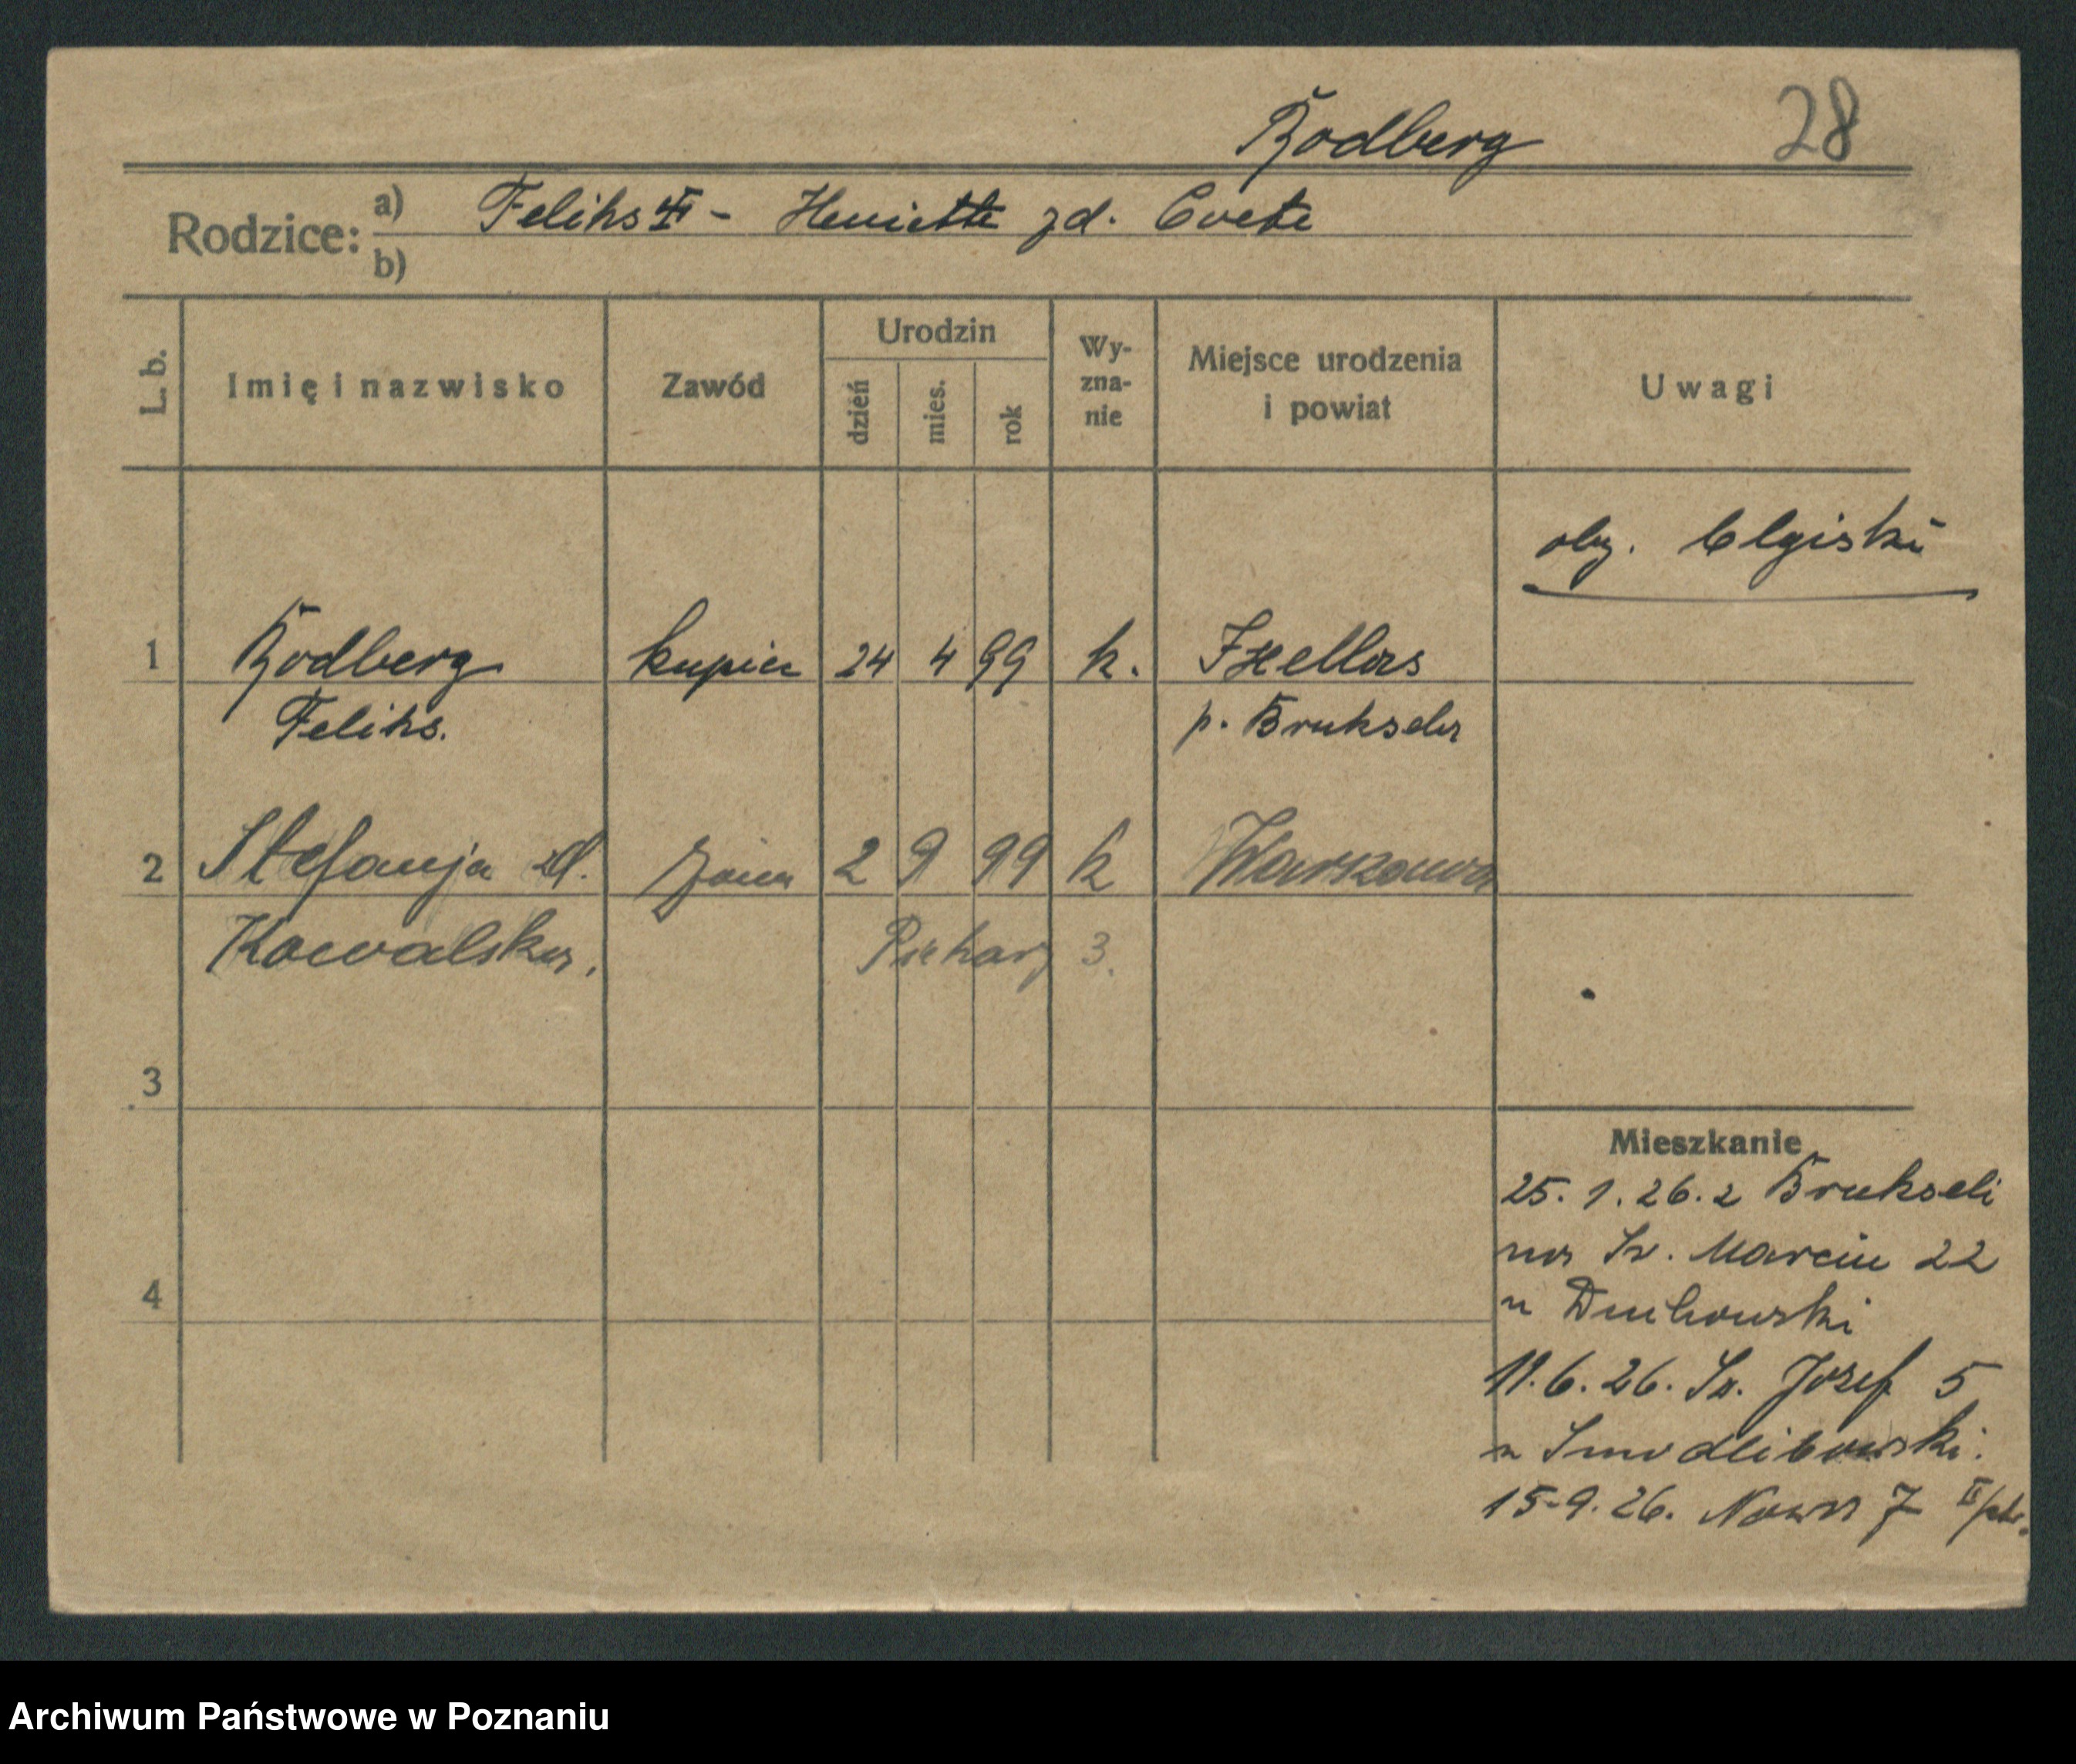 Rodberg 28
Rodzice: a) Feliks - Henriette zd.
b)
L. b. Imię i nazwisko Zawód Urodzin dzień mies. rok Wy-zna-nie Miejsce urodzenia i powiat Uwagi
ob. belgijski
1 Rodberg kupiec 24 4 99 k. Ixellas
Feliks. p. Bruksela
2 Stefanja zd. żona 2 9 99 k Warszawa
Kowalska. Piekary 3.
3
Mieszkanie
25. 1. 26. z Brukseli
na Św. Marcin 22
4
u
11. 6. 26. Św. Józef 5
u Smodlibowski.
15-9. 26. Nowa 7 II/ptr.
Archiwum Państwowe w Poznaniu